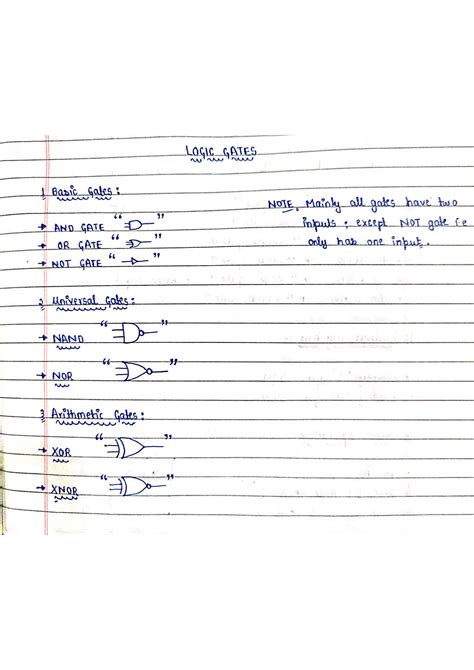 LOGIC GATES
1 Basic Gates :
NOTE. Mainly all gates have two
inputs ; except NOT gate i.e
only has one input.
→ AND GATE “ ”
→ OR GATE “ ”
→ NOT GATE “ ”
2 Universal Gates :
→ NAND “ ”
→ NOR “ ”
3 Arithmetic Gates :
→ XOR “ ”
→ XNOR “ ”